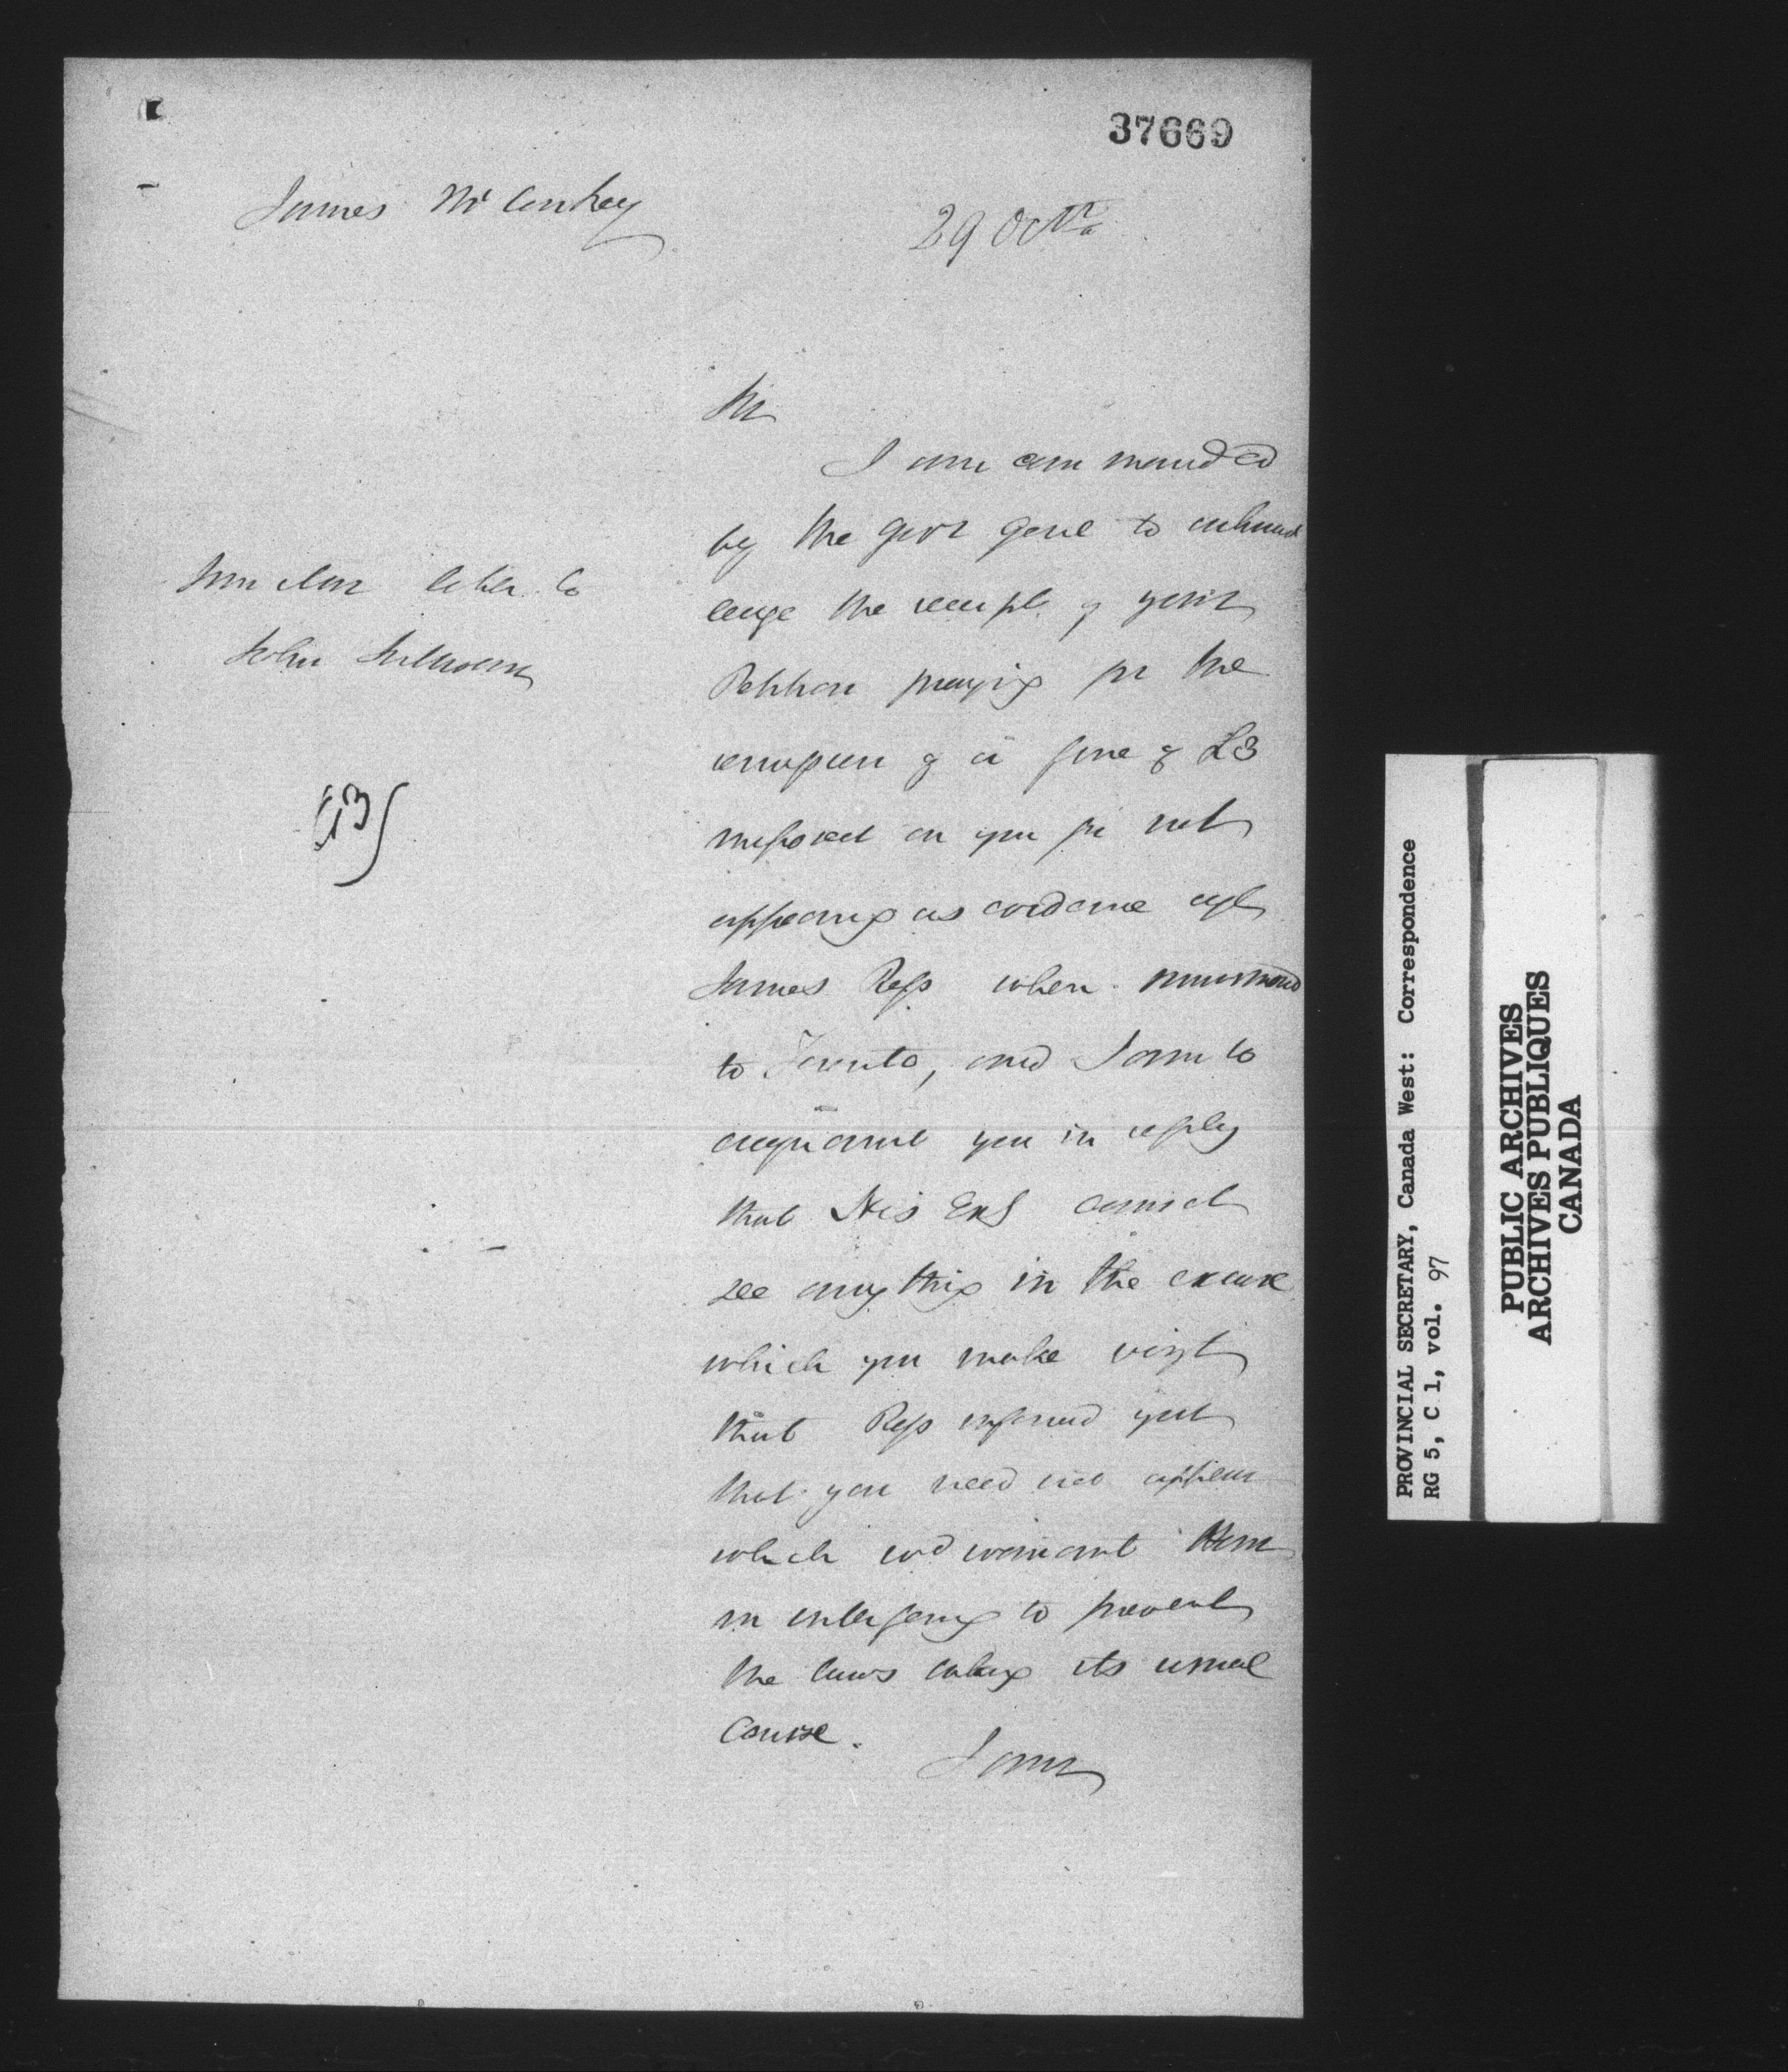 37669
James McConkey
29 Octr
Sir
I am commanded
by the Govr Genl to acknow
ledge the receipt of your
Petition praying for the
remission of a fine of £3
imposed on you for not
appearing as evidence agt
James Ross when summoned
to Toronto, and I am to
acquaint you in reply
that His Exy cannot
see anything in the excuse
which you make vizt
that Ross informed you
that you need not appear
which wd warrant Him
in interfering to prevent
the laws taking its usual
Course.
I am
Similar letter to
John
PROVINCIAL SECRETARY, Canada West: Correspondence
RG 5, C 1, vol. 97
PUBLIC ARCHIVES
ARCHIVES PUBLIQUES
CANADA